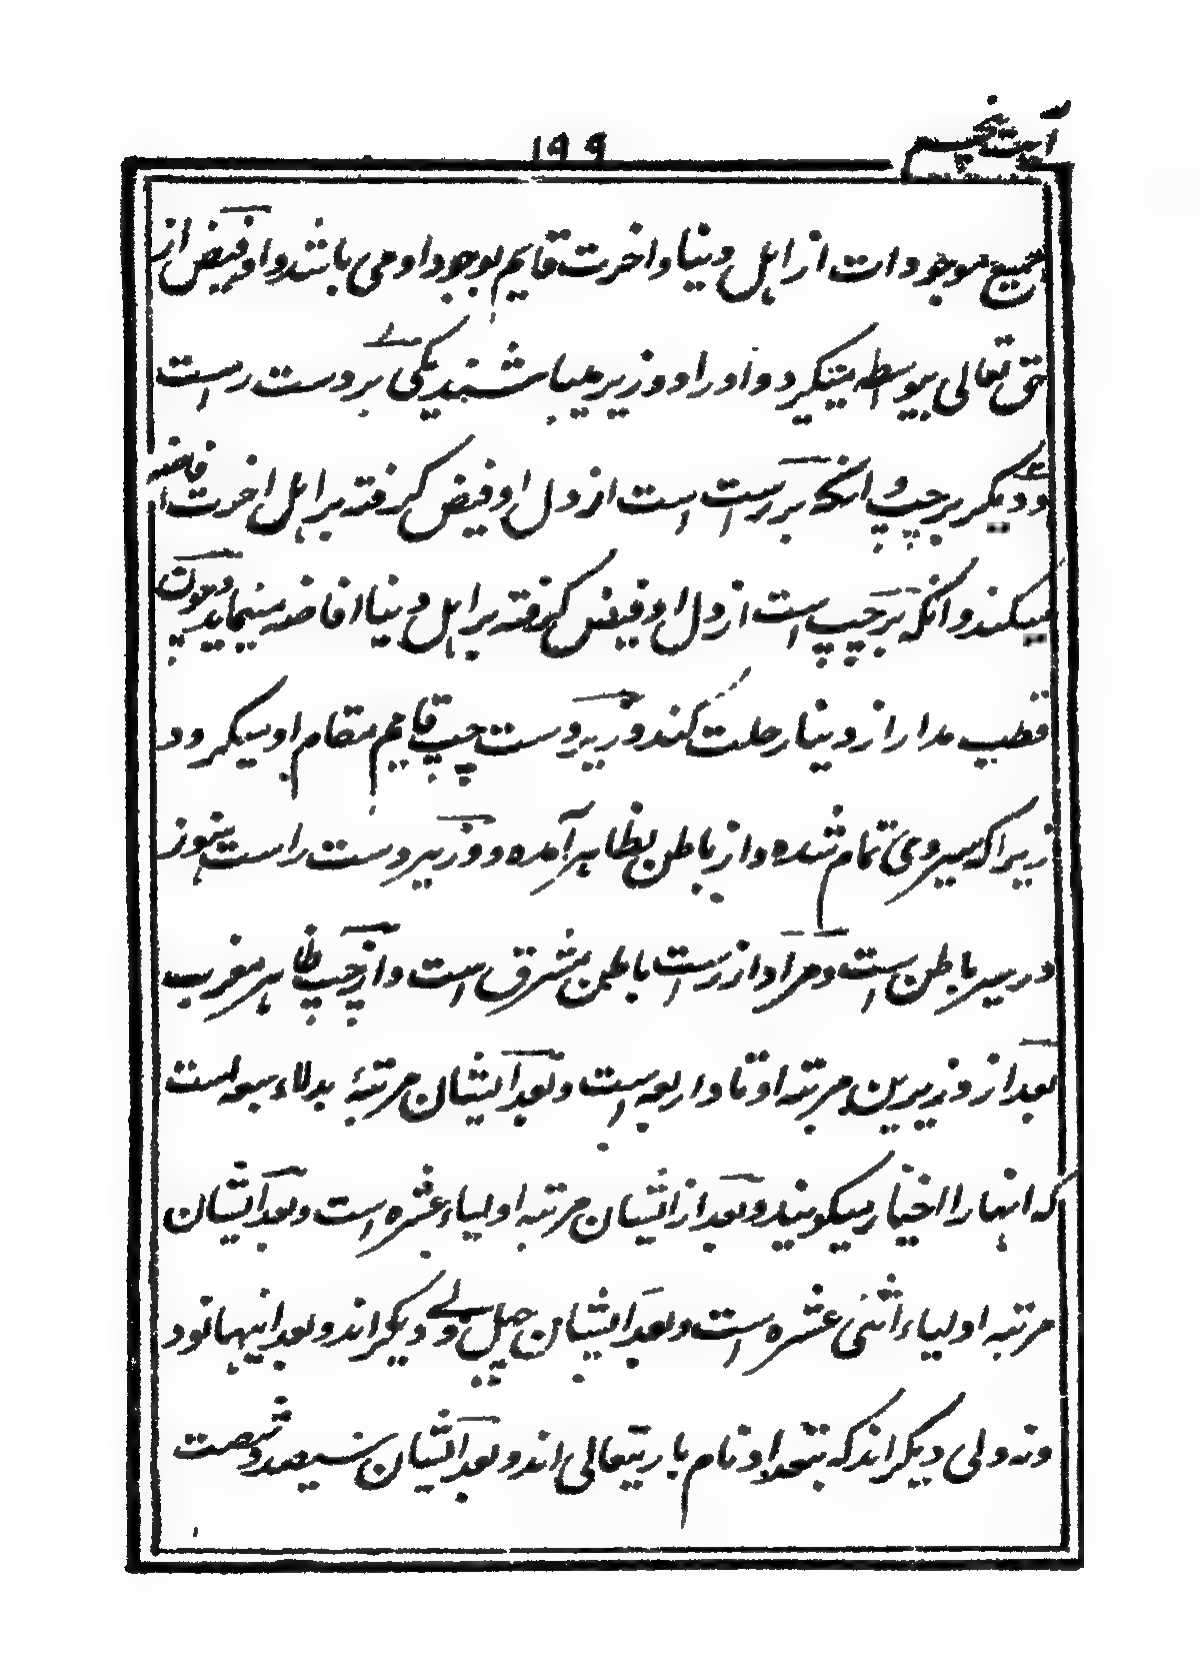 آیت پنجم
۱۹۹
جمیع موجودات از اهل دنیا و اخرت قایم بوجود او می باشد و او فیض از
حق تعالی بیوسطه میگیرد و او را دو وزیر میباشند یکی بر دست رست
و دیگر بر چپ و انکه بر رست است از دل او فیض گرفته بر اهل اخرت افاضه
میکند و انکه بر چپ است از دل او فیض گرفته بر اهل دنیا افاضه مینماید و چون
قطب مدار از دنیا رحلت کند وزیر دست چپ قایم مقام او میگردد
زیراکه سیر وی تمام شده و از باطن بظاهر آمده و وزیر دست راست هنوز
در سیر باطن است و مراد از رست باطن مشرق است و از چپ ظاهر مغرب
بعد از وزیرین مرتبه اوتاد اربعه است و بعد ایشان مرتبهٔ بدلاء سبعه است
که اینها را اخیار میگویند و بعد از ایشان مرتبه اولیاء عشره است و بعد ایشان
مرتبه اولیاء اثنی عشره است و بعد ایشان چهل ولی دیگر اند و بعد اینها نود
و نه ولی دیگر اند که بتعداد نام باریتعالی اند و بعد ایشان سیصد و شصت